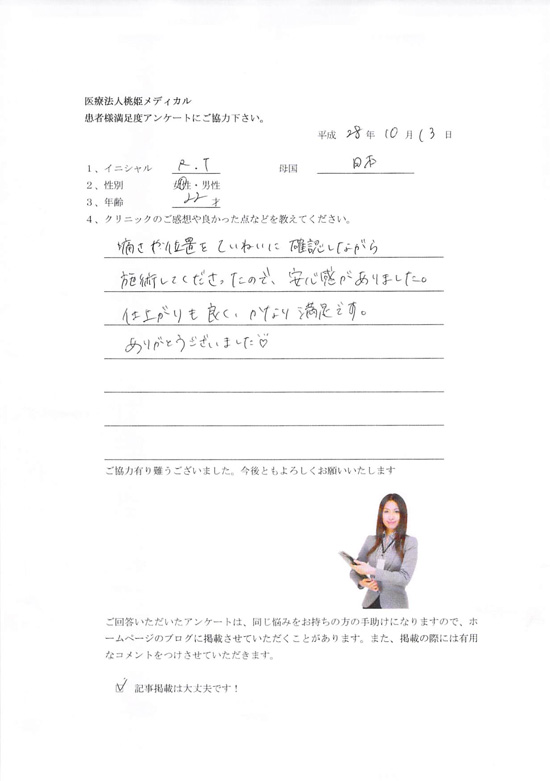 医療法人桃姫メディカル
患者様満足度アンケートにご協力下さい。
平成 28 年 10 月 13 日
1、イニシャル R.T 母国 日本
2、性別 女性・男性
3、年齢 22 才
4、クリニックのご感想や良かった点などを教えてください。
痛さや位置をていねいに確認しながら
施術してくださったので、安心感がありました。
仕上がりも良く、かなり満足です。
ありがとうございました♡
ご協力有り難うございました。今後ともよろしくお願いいたします
ご回答いただいたアンケートは、同じ悩みをお持ちの方の手助けになりますので、ホ
ームページのブログに掲載させていただくことがあります。また、掲載の際には有用
なコメントをつけさせていただきます。
☑ 記事掲載は大丈夫です！